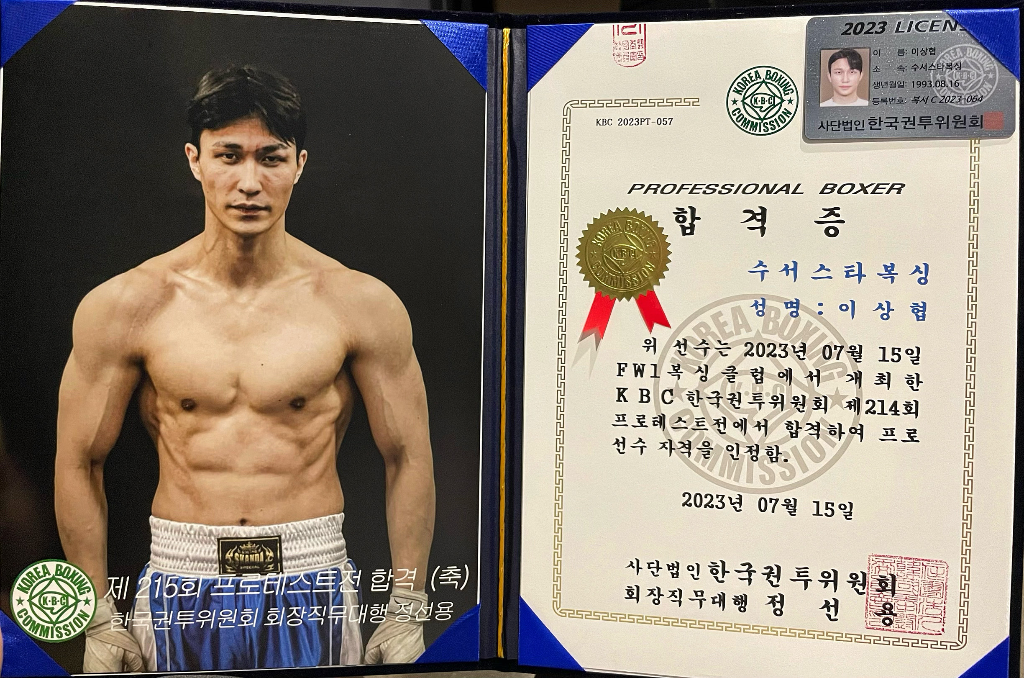 SKANDA
KOREA BOXING
K·B·C
COMMISSION
제 215회 프로테스트전 합격 (축)
한국권투위원회 회장직무대행 정선용
KBC 2023PT-057
KOREA BOXING
K·B·C
COMMISSION
2023 LICENS
이 름: 이상협
소 속: 수서스타복싱
생년월일: 1993.08.16
등록번호: 복서 C 2023-064
사단법인 한국권투위원회
KOREA BOXING
COMMISSION
PROFESSIONAL BOXER
합 격 증
KOREA BOXING
COMMISSION
수서스타복싱
성명:이상협
위 선수는 2023년 07월 15일
FW1복싱클럽에서 개최한
KBC한국권투위원회 제214회
프로테스트전에서 합격하여 프로
선수 자격을 인정함.
KOREA BOXING
COMMISSION
2023년 07월 15일
사단법인 한국권투위원회
회장직무대행 정 선 용